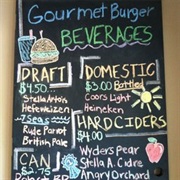 Gourmet Burger
BEVERAGES
DRAFT
$4.50...
Stella Artois
Hefeweizen
7 Seas
Rude Parrot
British Pale
CAN
DOMESTIC
$3.00 Bottled
Coors Light
Heineken
HARD CIDERS
$4.00
Wyders Pear
Stella A. Cidre
Angry Orchard